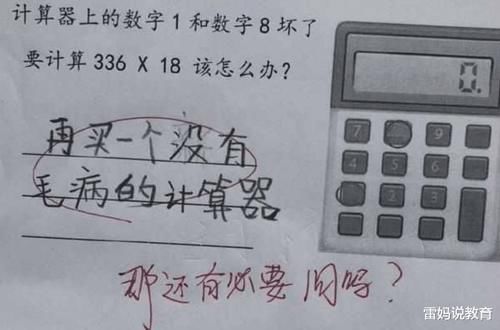 计算器上的数字1和数字8坏了
要计算336 X 18 该怎么办?
再买一个没有
毛病的计算器
那还有必要问吗?
0.
7 9
4 5 6
2 3
雷妈说教育